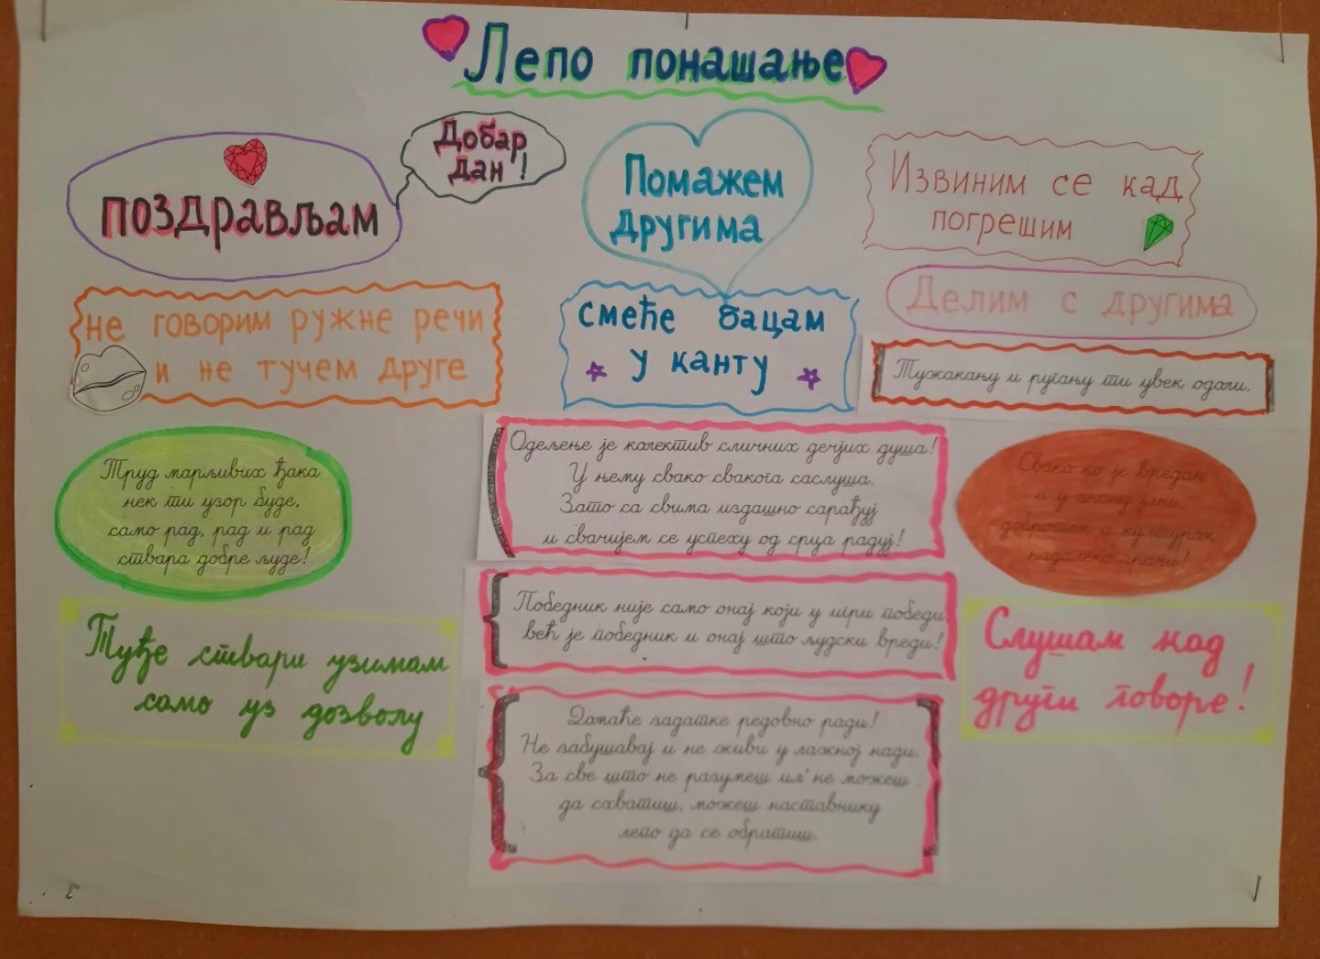 Лепо понашање
поздрављам
Добар
дан!
Помажем
другима
Извиним се кад
погрешим
не говорим ружне речи
и не тучем друге
смеће бацам
у канту
Делим с другима
Тужакању и ругању ти увек одоли.
Труд марљивих ђака
нек ти узор буде,
само рад, рад и рад
ствара добре људе!
Одељење је колектив сличних дечјих душа!
У њему свако свакога саслуша.
Зато са свима издашно сарађуј
и свачијем се успеху од срца радуј!
Свако ко је вредан
и у
Туђе ствари узимам
само уз дозволу
Победник није само онај који у игри победи,
већ је победник и онај што људски вреди!
Слушам кад
други говоре!
Домаће задатке редовно ради!
Не забушавај и не живи у лажној нади.
За све што не разумеш ил' не можеш
да схватиш, можеш наставнику
лепо да се обратиш.